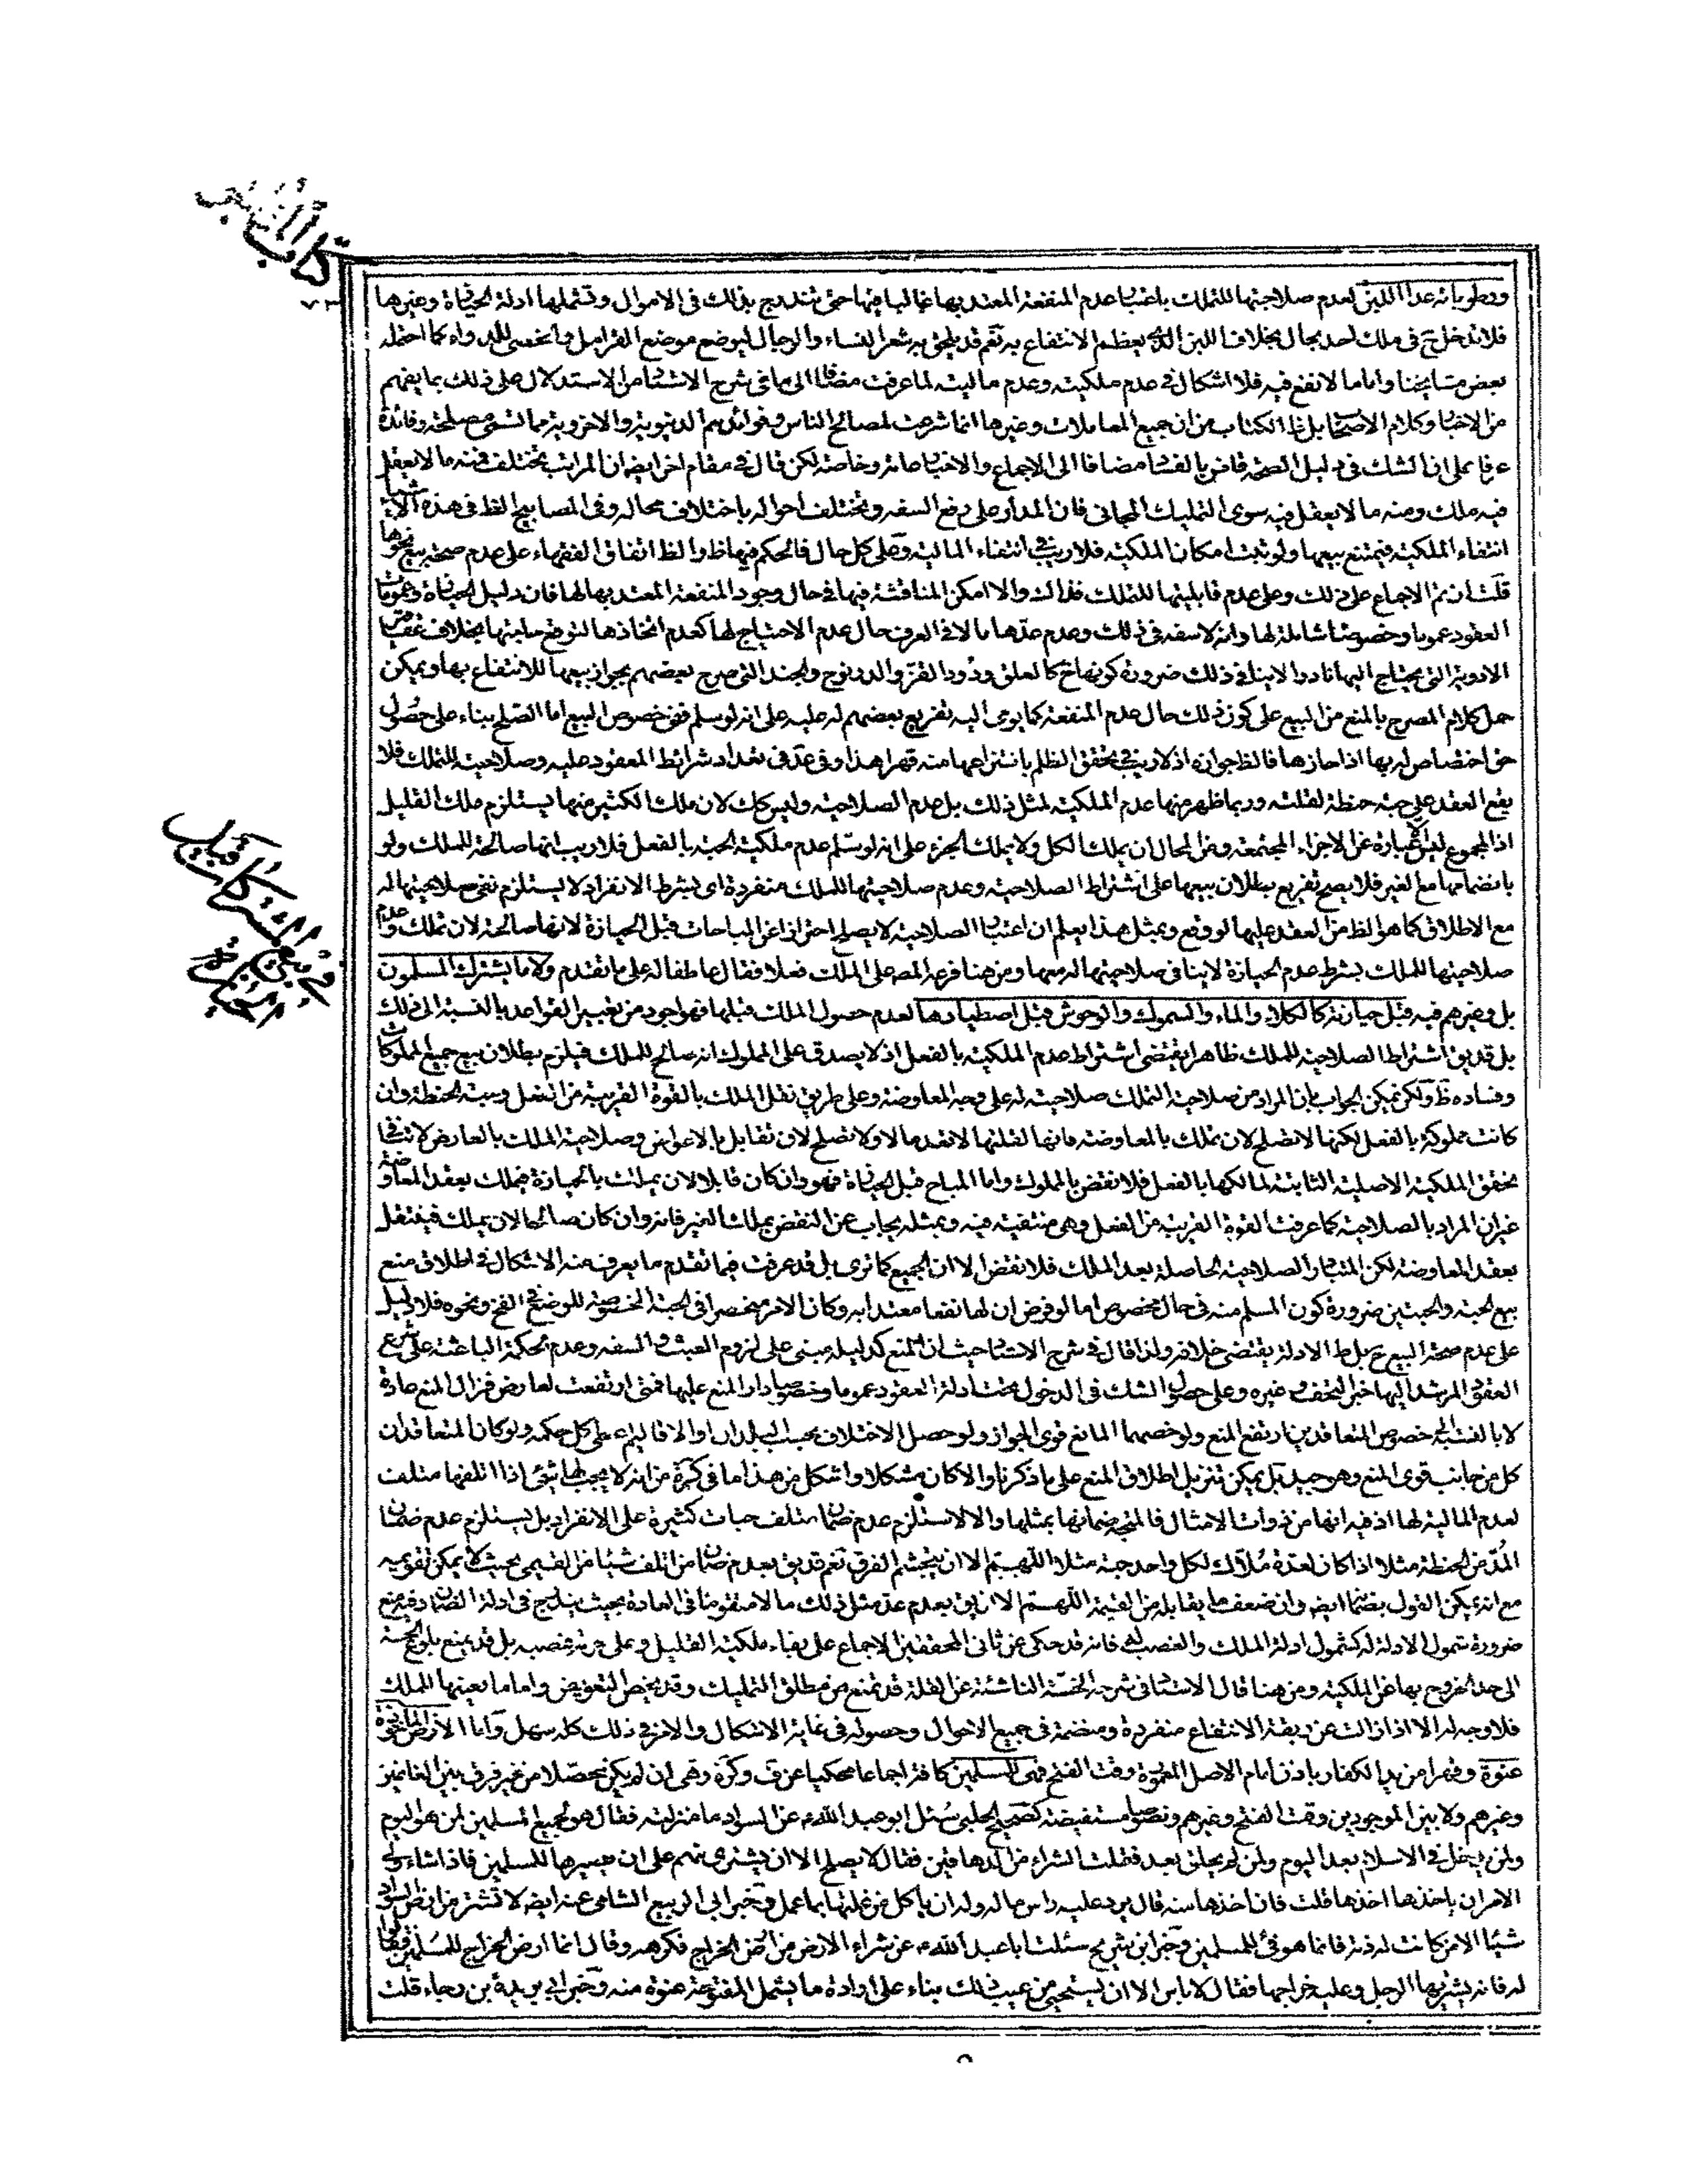 كتاب المكاسب
٧٣
ورطوباته عدا اللبن لعدم صلاحيتها للتملك باعتبار عدم المنفعة المعتد بها غالبا فيها حتى تندرج بذلك في الاموال وتشملها ادلة الحيازة وغيرها
فلا تدخل ح في ملك احد بحال بخلاف اللبن الذي يعظم الانتفاع به نعم قد يلحق به شعر النساء والرجال ليوضع موضع القرامل وللدواء كما احتمله
بعض مشايخنا واما ما لا نفع فيه فلا اشكال في عدم ملكيته وعدم ماليته لما عرفت مضافا الى ما في شرح الاستاد من الاستدلال على ذلك بما يفهم
من الاخبار وكلام الاصحاب بل ظ الكتاب من ان جميع المعاملات وغيرها انما شرعت لمصالح الناس وفوائدهم الدنيوية والاخروية مما تسمى مصلحة وفائدة
عرفا على ان الشك في دليل الصحة قاض بالفساد مضافا الى الاجماع والاخبار عامة وخاصة لكن قال في مقام اخر ايضا ان المراتب تختلف فمنه ما لا يعقل
فيه ملك ومنه ما لا يعقل فيه سوى التمليك المجاني فان المدار على رفع السفه وتختلف احواله باختلاف محاله وفي المصابيح الظ في هذه الاشياء
انتفاء الملكية فيمتنع بيعها ولو ثبت امكان الملكية فلا ريب في انتفاء المالية وعلى كل حال فالحكم فيها ظ والظ اتفاق الفقهاء على عدم صحة بيع نحوها
قلت ان تم الاجماع على ذلك وعلى عدم قابليتها للتملك فذاك والا امكن المناقشة فيها في حال وجود المنفعة المعتد بها لها فان دليل الحيازة وعمومات
العقود عموما وخصوصا شاملة لها وانه لا سفه في ذلك وعدم عدها مالا في العرف حال عدم الاحتياج لها كعدم اتخاذها لتوضع حليتها بخلاف
الادوية التي يحتاج اليها نادرا لا ينافي ذلك ضرورة كونها ح كالعلق ودود القز والديدنوج والجند التي صرح بعضهم بجواز بيعها للانتفاع بها ويمكن
حمل كلام المصرح بالمنع من البيع على كون ذلك حال عدم المنفعة كما يومى اليه تفريع بعضهم له عليه على انه لو سلم ففي خصوص البيع اما الصلح بناء على حصول
حق اختصاص له بها اذا حازها فالظ جوازه اذ لا ريب في تحقق الظلم بانتزاعها منه قهرا هذا وفي عد في تعداد شرائط المعقود عليه وصلاحيته للتملك فلا
يقع العقد على حبة حنطة لقلته وربما ظهر منها عدم الملكية لمثل ذلك بل عدم الصلاحية وليس كك لان ملك الكثير منها يستلزم ملك القليل
اذ المجموع ليس الا عبارة عن الاجزاء المجتمعة ومن المحال ان يملك الكل ولا يملك الجزء على انه لو سلم عدم ملكية الحبة بالفعل فلا ريب انها صالحة للملك ولو
بانضمامها مع الغير فلا يصح تفريع بطلان بيعها على اشتراط الصلاحية وعدم صلاحيتها للملك منفردة اي بشرط الانفراد لا يستلزم نفي صلاحيتها له
مع الاطلاق كما هو الظ من العقد عليها لو وقع وبمثل هذا يعلم ان اعتبار الصلاحية لا يصلح احترازا عن المباحات قبل الحيازة لانها صالحة لان تملك وعدم
صلاحيتها للملك بشرط عدم الحيازة لا ينافي صلاحيتها له معها ومن هنا فرعه المصه على الملك فعلا فقال عاطفا له على ما تقدم ولا ما يشترك المسلمون
بل وغيرهم فيه قبل حيازته كالكلاء والماء والسموك والوحوش قبل اصطيادها لعدم حصول الملك قبلها فهو اجود من تغيير القواعد بالنسبة الى ذلك
بل قد يق اشتراط الصلاحية للملك ظاهرا يقتضي اشتراط عدم الملكية بالفعل اذ لا يصدق على المملوك انه صالح للملك فيلزم بطلان بيع جميع المملوكات
وفساده ظ ولكن يمكن الجواب بان المراد من صلاحية التملك صلاحيته له على وجه المعاوضة وعلى طريق نقل الملك بالقوة القريبة من الفعل وحبة الحنطة وان
كانت مملوكة بالفعل لكنها لا تصلح لان تملك بالمعاوضة فانها لقلتها لا تعد مالا ولا تصلح لان تقابل بالاعواض وصلاحية الملك بالعارض لا تنافي
تحقق الملكية الاصلية الثابتة لمالكها بالفعل فلا نقض بالمملوك واما المباح قبل الحيازة فهو وان كان قابلا لان يملك بالحيازة فيملك بعقد المعاوضة
غير ان المراد بالصلاحية كما عرفت القوة القريبة من الفعل وهي منتفية فيه وبمثله يجاب عن النقض بملك الغير فانه وان كان صالحا لان يملك فينتقل
بعقد المعاوضة لكن المتبادر الصلاحية الحاصلة بعد الملك فلا نقض الا ان الجميع كما ترى بل قد عرفت فيما تقدم ما يعرف منه الاشكال في اطلاق منع
بيع الحبة والحبتين ضرورة كون المسلم منه في حال مخصوص اما لو فرض ان لها نفعا معتدا به وكان الامر منحصرا في الحبة المخصوصة للوضع في الفخ ونحوه فلا دليل
على عدم صحة البيع ح بل ظ الادلة يقتضي خلافه ولذا قال في شرح الاستاد حيث ان المنع كدليله مبنى على لزوم العبث والسفه وعدم الحكمة الباعثة على شرع
العقود المرشد اليها خبر التحف وغيره وعلى حصول الشك في الدخول تحت ادلة العقود عموما وخصوصا دار المنع عليها فمتى ارتفعت لعارض فزال المنع عادة
لا بالنسبة الى خصوص المتعاقدين ارتفع المنع ولو خصهما المانع قوى الجواز ولو حصل الاختلاف بحسب البلدان او الاقاليم اعطى كل حكمه ولو كان المتعاقدان
كل من جانب قوى المنع وهو جيد بل يمكن تنزيل اطلاق المنع على ما ذكرنا والا كان مشكلا واشكل من هذا ما في كرة من انه لا يجب لها شيء اذا اتلفها متلف
لعدم المالية لها اذ فيه انها من ذوات الامثال فالمتجه ضمانها بمثلها والا لاستلزم عدم ضمان متلف حبات كثيرة على الانفراد بل يستلزم عدم ضمان
المد من الحنطة مثلا اذا كان لعدة ملاك لكل واحد حبة مثلا اللهم الا ان يتجشم الفرق نعم قد يق بعدم ضمان من اتلف شيئا من القيمي بحيث لا يمكن تقويمه
مع انه يمكن القول بضمانه ايضا وان ضعف ما يقابله من القيمة اللهم الا ان يق بعدم عد مثل ذلك مالا متقوما في العادة بحيث يندرج في ادلة الضمان وفيه منع
ضرورة شمول الادلة له كشمول ادلة الملك والغصب له فانه قد حكى عن ثاني المحققين الاجماع على بقاء ملكية القليل وعلى حرمة غصبه بل قد يمنع بلوغ الخسة
الى حد الخروج بها عن الملكية ومن هنا قال الاستاد في شرحه الخسة الناشئة عن القلة قد تمنع من مطلق التمليك وقد يخص التعويض واما ما يعينها الملك
فلا وجه له الا اذا زالت عن ربقة الانتفاع منفردة ومنضمة في جميع الاحوال وحصوله في غاية الاشكال والامر في ذلك كله سهل واما الارض الماخوذة
عنوة وقهرا من يد الكفار باذن امام الاصل المعمورة وقت الفتح فهي للمسلمين كافة اجماعا محكيا عن ف وكرة وهي ان لم يكن محصلا من غير فرق بين الغانمين
وغيرهم ولا بين الموجودين وقت الفتح وغيرهم ونصوصا مستفيضة كصحيح الحلبي سئل ابو عبد الله ع عن السواد ما منزلته فقال هو لجميع المسلمين لمن هو اليوم
ولمن يدخل في الاسلام بعد اليوم ولمن لم يخلق بعد فقلت الشراء من الدهاقين فقال لا يصلح الا ان يشترى منهم على ان يصيرها للمسلمين فاذا شاء ولي
الامر ان ياخذها اخذها قلت فان اخذها منه قال يرد عليه راس ماله وله ان ياكل من غلتها بما عمل وخبر ابي الربيع الشامي عنه ايضا لا تشتر من ارض السواد
شيئا الا من كانت له ذمة فانما هو فيء للمسلمين وخبر ابن شريح سئلت ابا عبد الله ع عن شراء الارض من ارض الخراج فكرهه وقال انما ارض الخراج للمسلمين فقالوا
له فانه يشتريها الرجل وعليه خراجها فقال لا باس الا ان يستحيى من عيب ذلك بناء على ارادة ما يشمل المفتوحة عنوة منه وخبر ابي بردة بن رجاء قلت